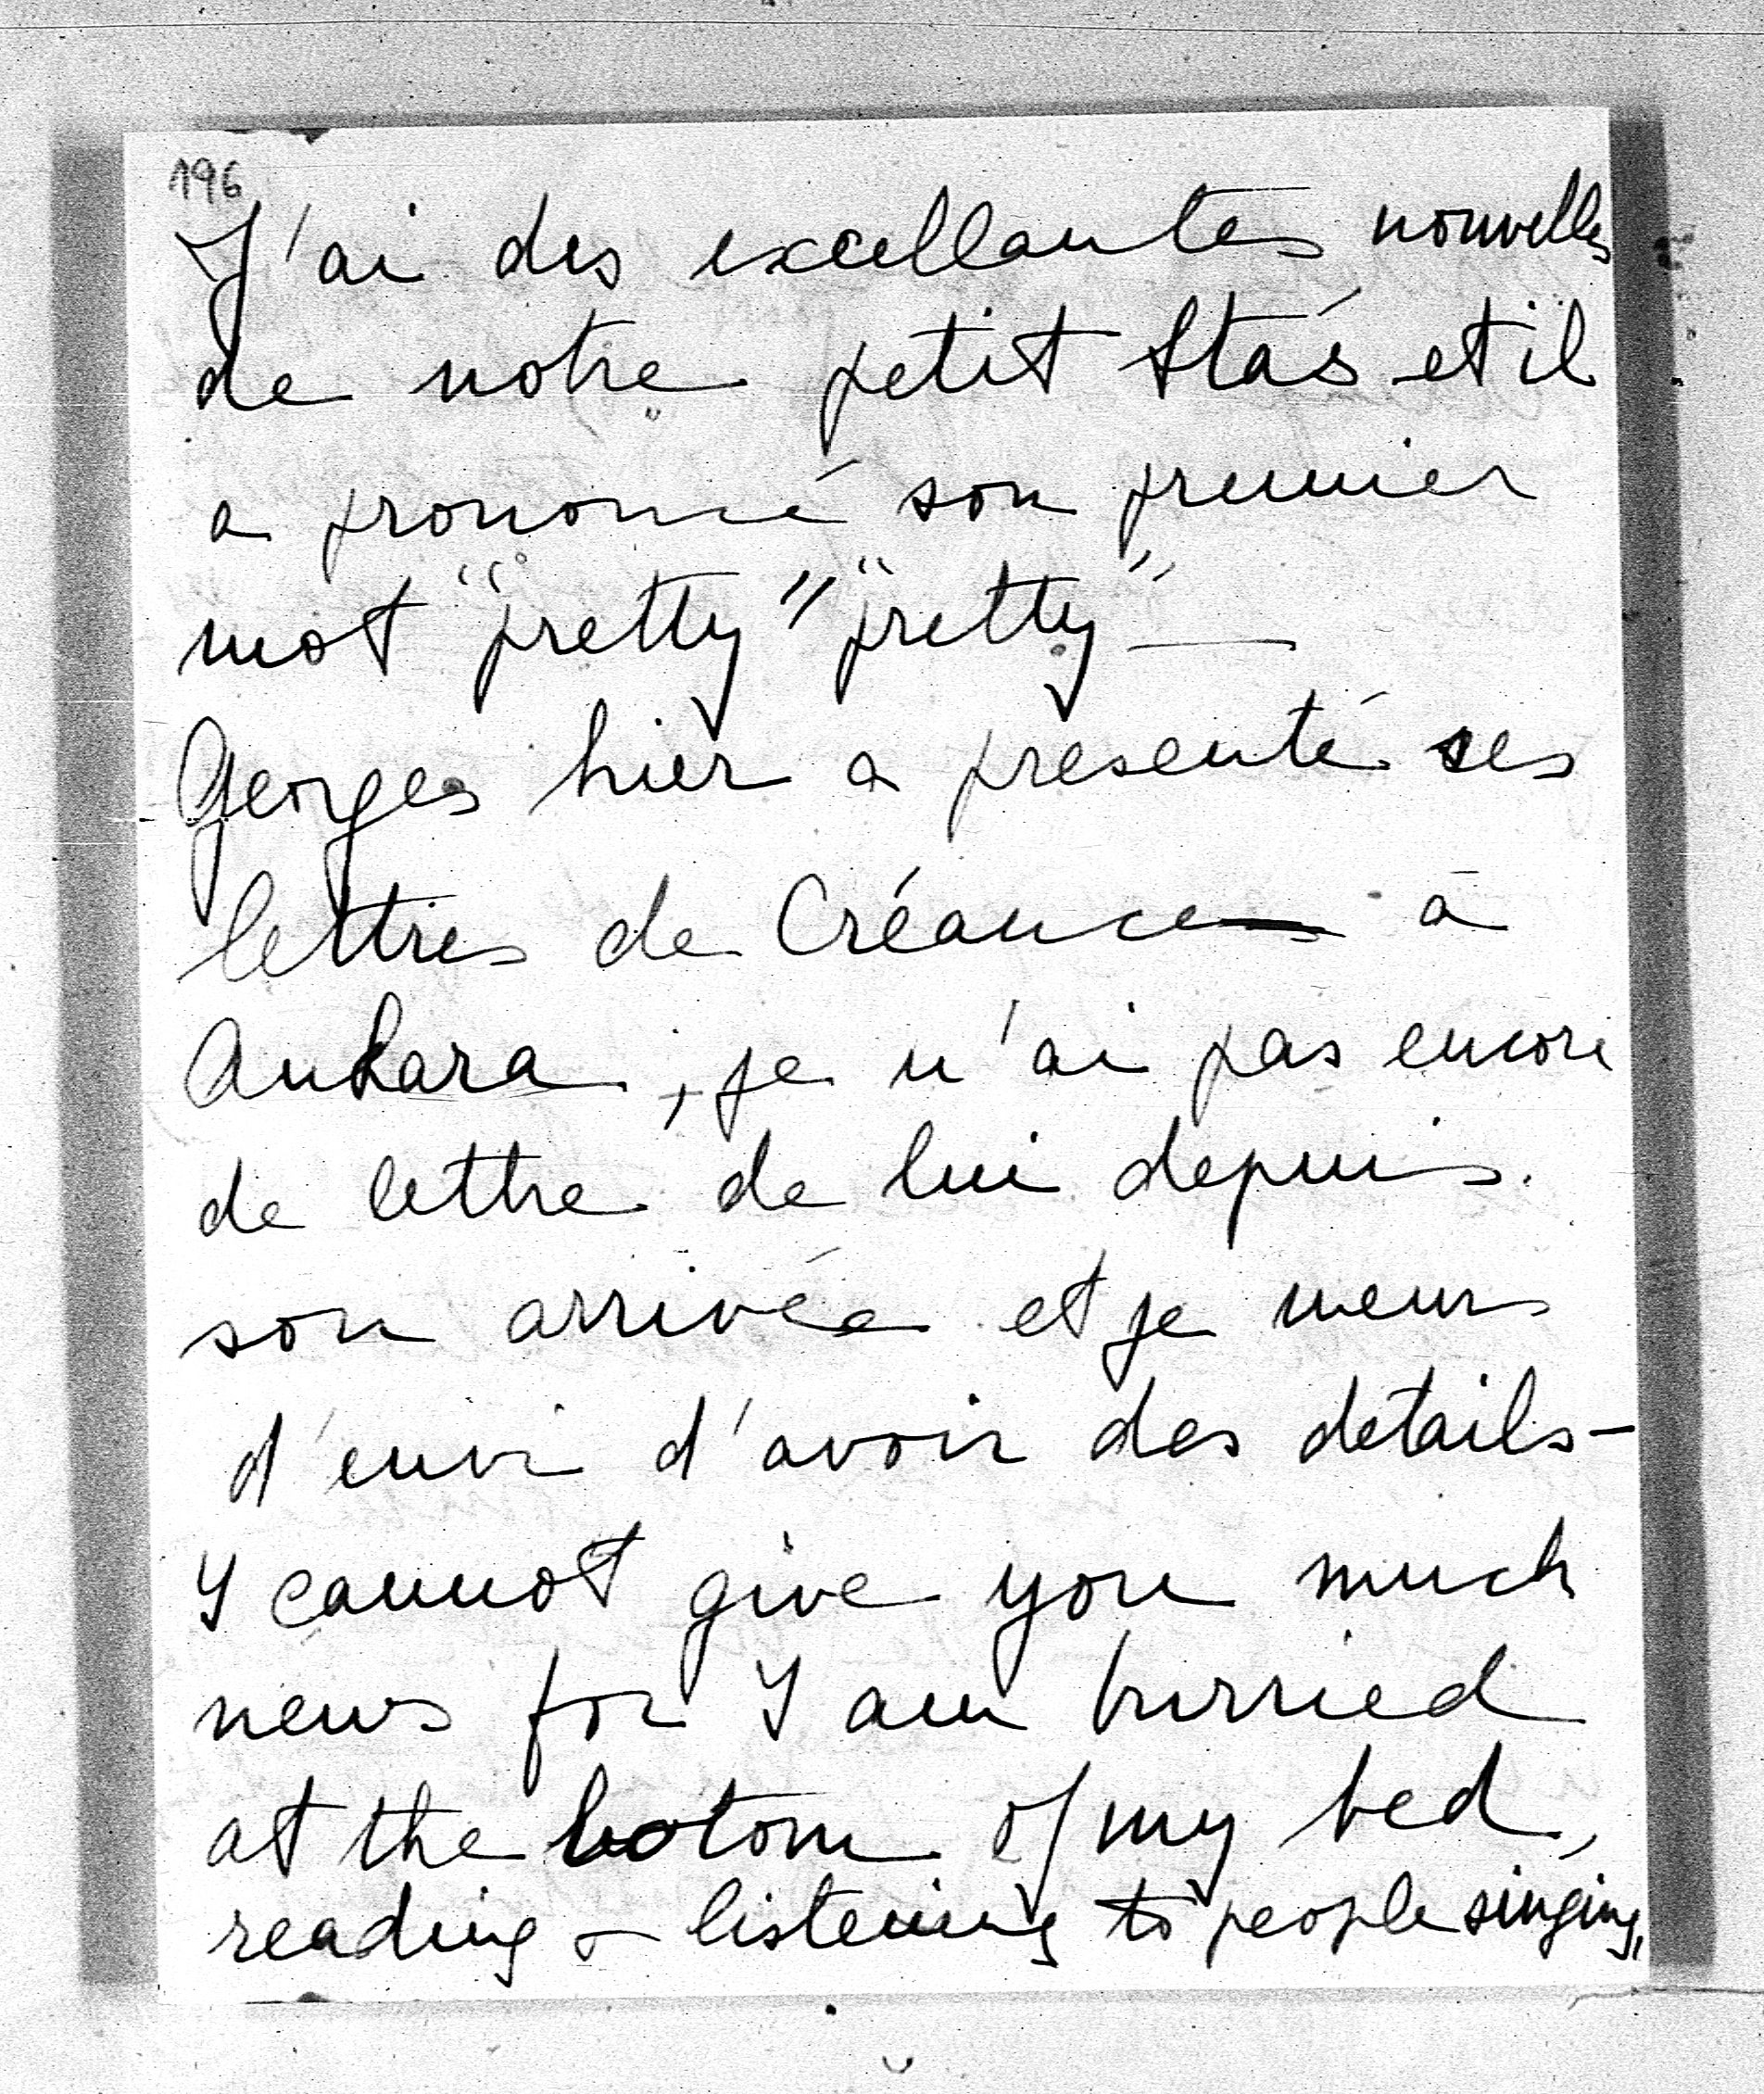 196
J'ai des excellantes nouvelles
de notre petit Staś et il
a prononcé son premier
mot "pretty" "pretty" —
Georges hier a presenté ses
lettres de Créance à
Ankara, je n'ai pas encore
de lettre de lui depuis.
son arrivée et je meurs
d'envi d'avoir des details —
I cannot give you much
news for I am burried
at the botom of my bed,
reading & listening to people singing,